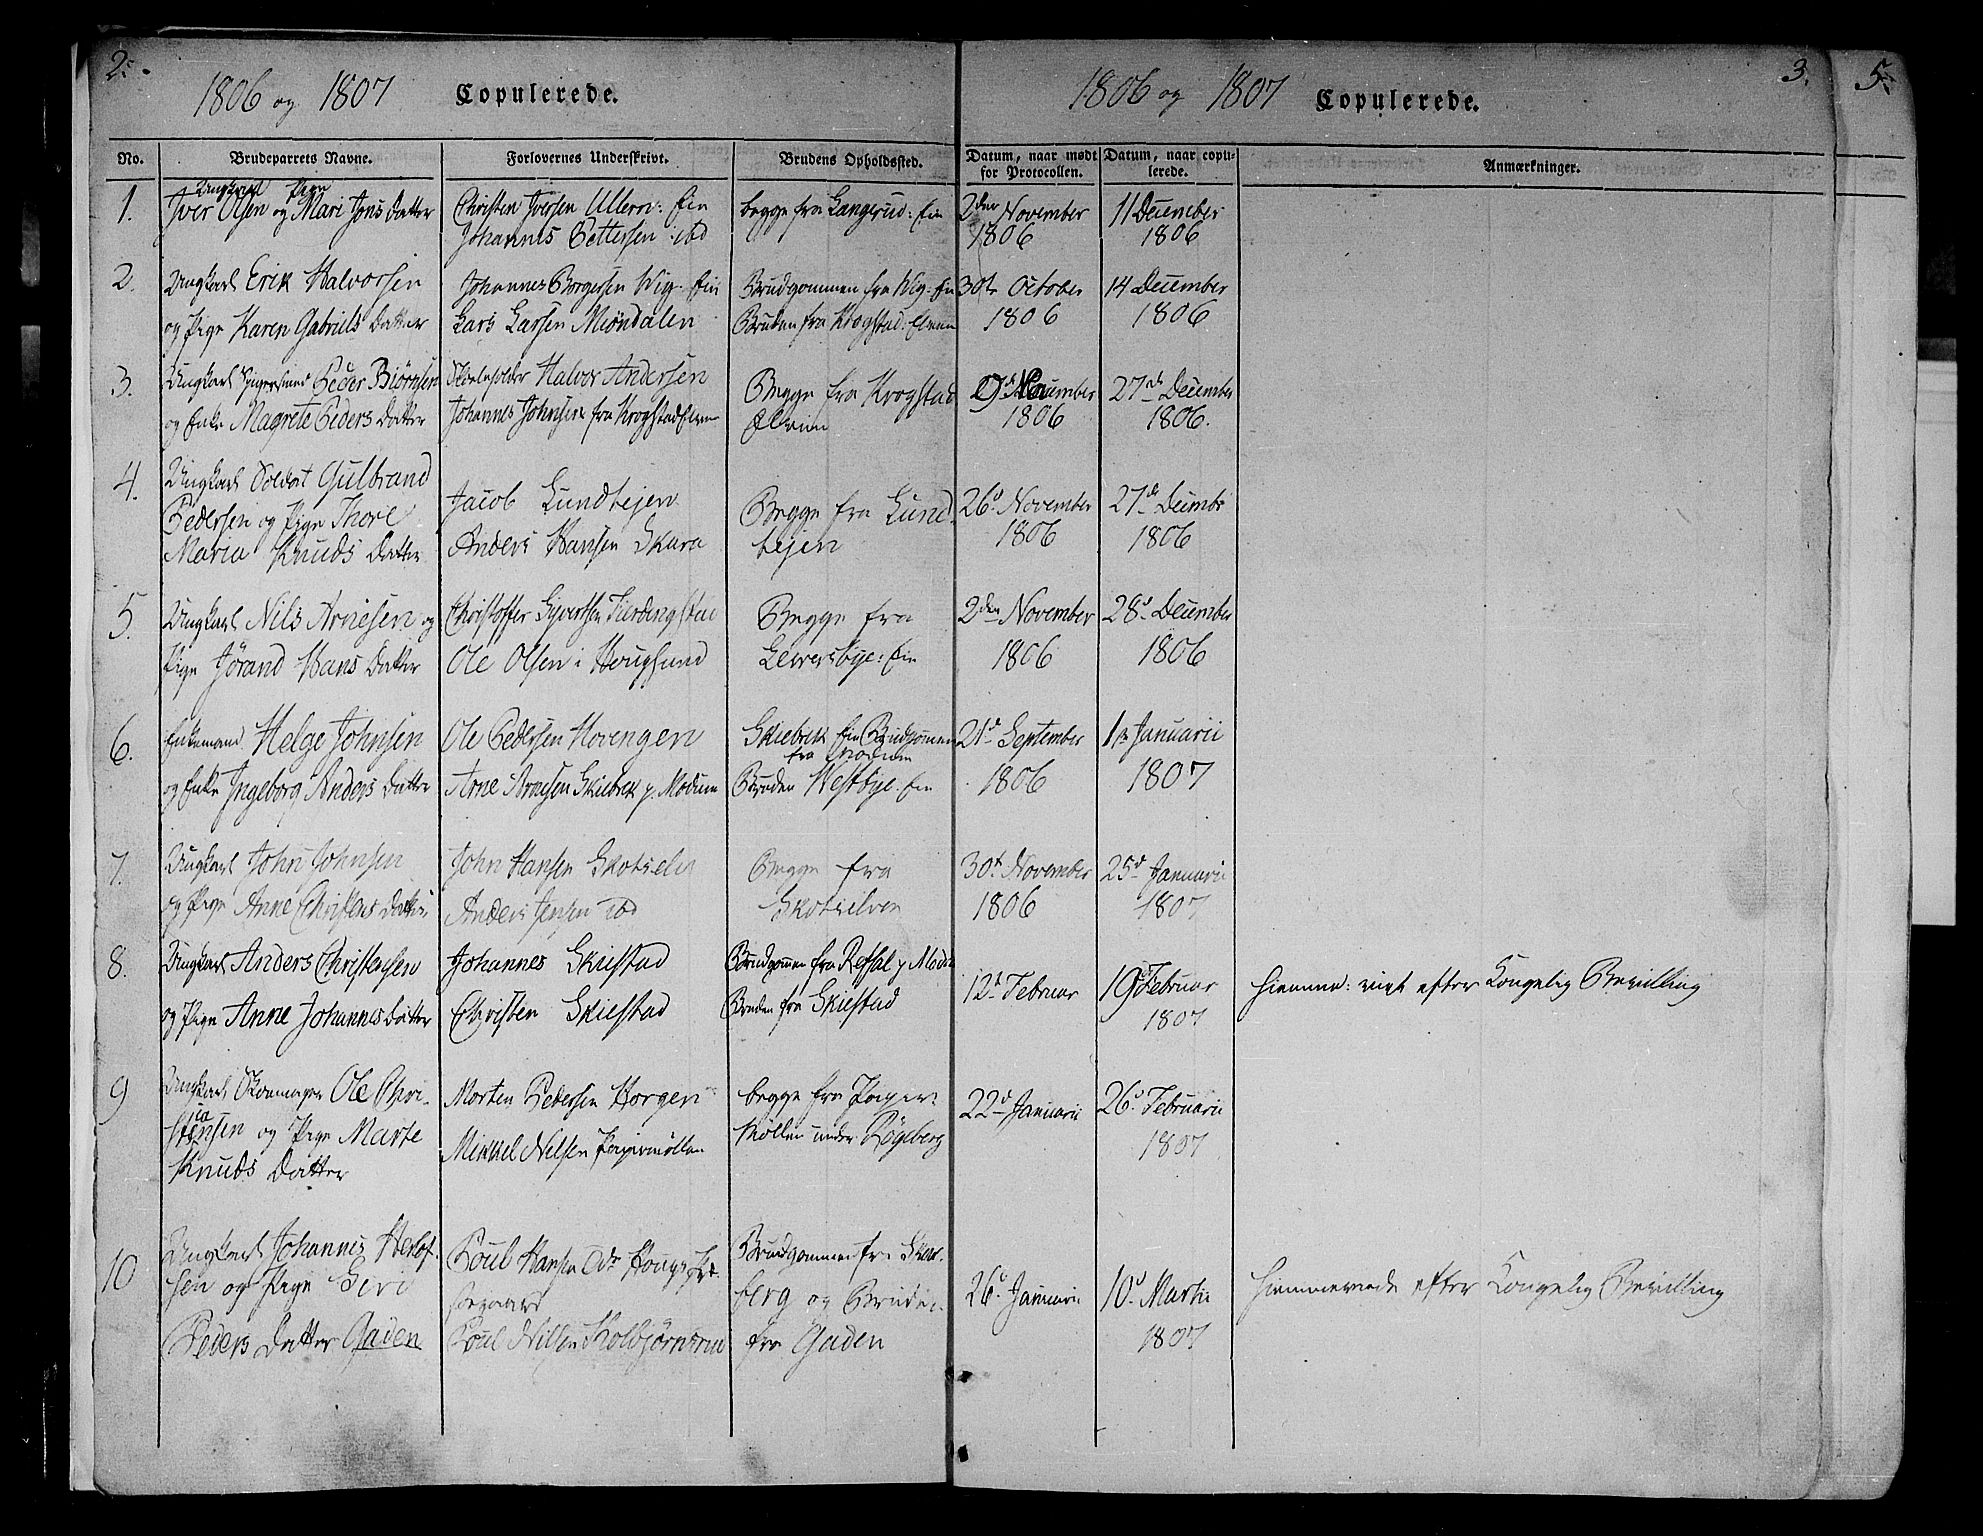 2.
1806 og 1807 Copulerede.
1806 og 1807 Copulerede.
3.
5.
No.
Brudeparrets Navne.
Forlovernes Underskrivt.
Brudens Opholdssted.
Datum, naar mødt for Protocollen.
Datum, naar copulerede.
Anmærkninger.
1.
Ungkarl Pige
Iver Olsen og Mari Jons Datter
Christen Iversen Ullern: Ein
Johannes Pettersen ibd
begge fra Langerud: Ein
2den November
1806
11 December
1806
2.
Ungkarl Erik Halvorsen
og Pige Karen Gabriels Datter
Johannes Borgersen Wig. Ein
Lars Larsen Miöndalen
Brudgommen fra Wig: Ein
Bruden fra Krogstad: Elven
30te October
1806
14 December
1806
3.
Ungkarl Peder Biörnsen
og Enke Magrete Peders Datter
Skoleholder Halvor Andersen
Johannes Johnsen fra Krogstad Elven
Begge fra Krogstad
Elven
9d November
1806
27de December
1806.
4.
Ungkarl Soldat Gulbrand
Pedersen og Pige Thore
Maria Knuds Datter
Jacob Lundtejen
Anders Hansen Skara
Begge fra Lund-
tejen
26d November
1806
27de Decembr
1806
5.
Ungkarl Nils Arnesen og
Pige Jørand Hans Datter
Christoffer Syvertsen Fierdingstad
Ole Olsen i Hougsund
Begge fra
Leversbye: Ein
2den November
1806
28d December
1806
6.
Enkemand Helge Johnsen
og Enke Ingeborg Anders Datter
Ole Pedersen Hovengen
Arne Arnesen Skiebrek p. Modum
Skiebrek Ein Brudgommen
fra Modum
Bruden Westbye. Ein
21d September
1806
1te Januarii
1807
7.
Ungkarl John Johnsen
og Pige Anne Christens Datter
John Hansen Skotselv
Anders Jensen ibd
Begge fra
Skotselven
30te November
1806
25d Januarii
1807
8.
Ungkarl Anders Christensen
og Pige Anne Johannes Datter
Johannes Skiestad
Christen Skiestad
Brudgommen fra Refsal p Modum
Bruden fra Skiestad
12te Februar
19d Februar
1807
hiemme: viet efter Kongelig Bevilling
9
Ungkarl Skomager Ole Chri-
stensen og Pige Marte
Knuds Datter
Morten Pedersen Horgen
Mikkel Nilsen Papiirmøllen
begge fra Papiir-
Møllen under Røgeberg
22d Januarii
26d Februarii
1807
10
Ungkarl Johannes Herlof-
sen og Pige Siri
Peders Datter Gaden
Poul Hansen Hougs Præ-
stegaard
Poul Nilsen Kolbjørnsrud
Brudgommen fra
berg og Bruden
fra Gaden
26d Januarii
10d Martii
1807
hiemmeviede efter Kongelig Bevilling